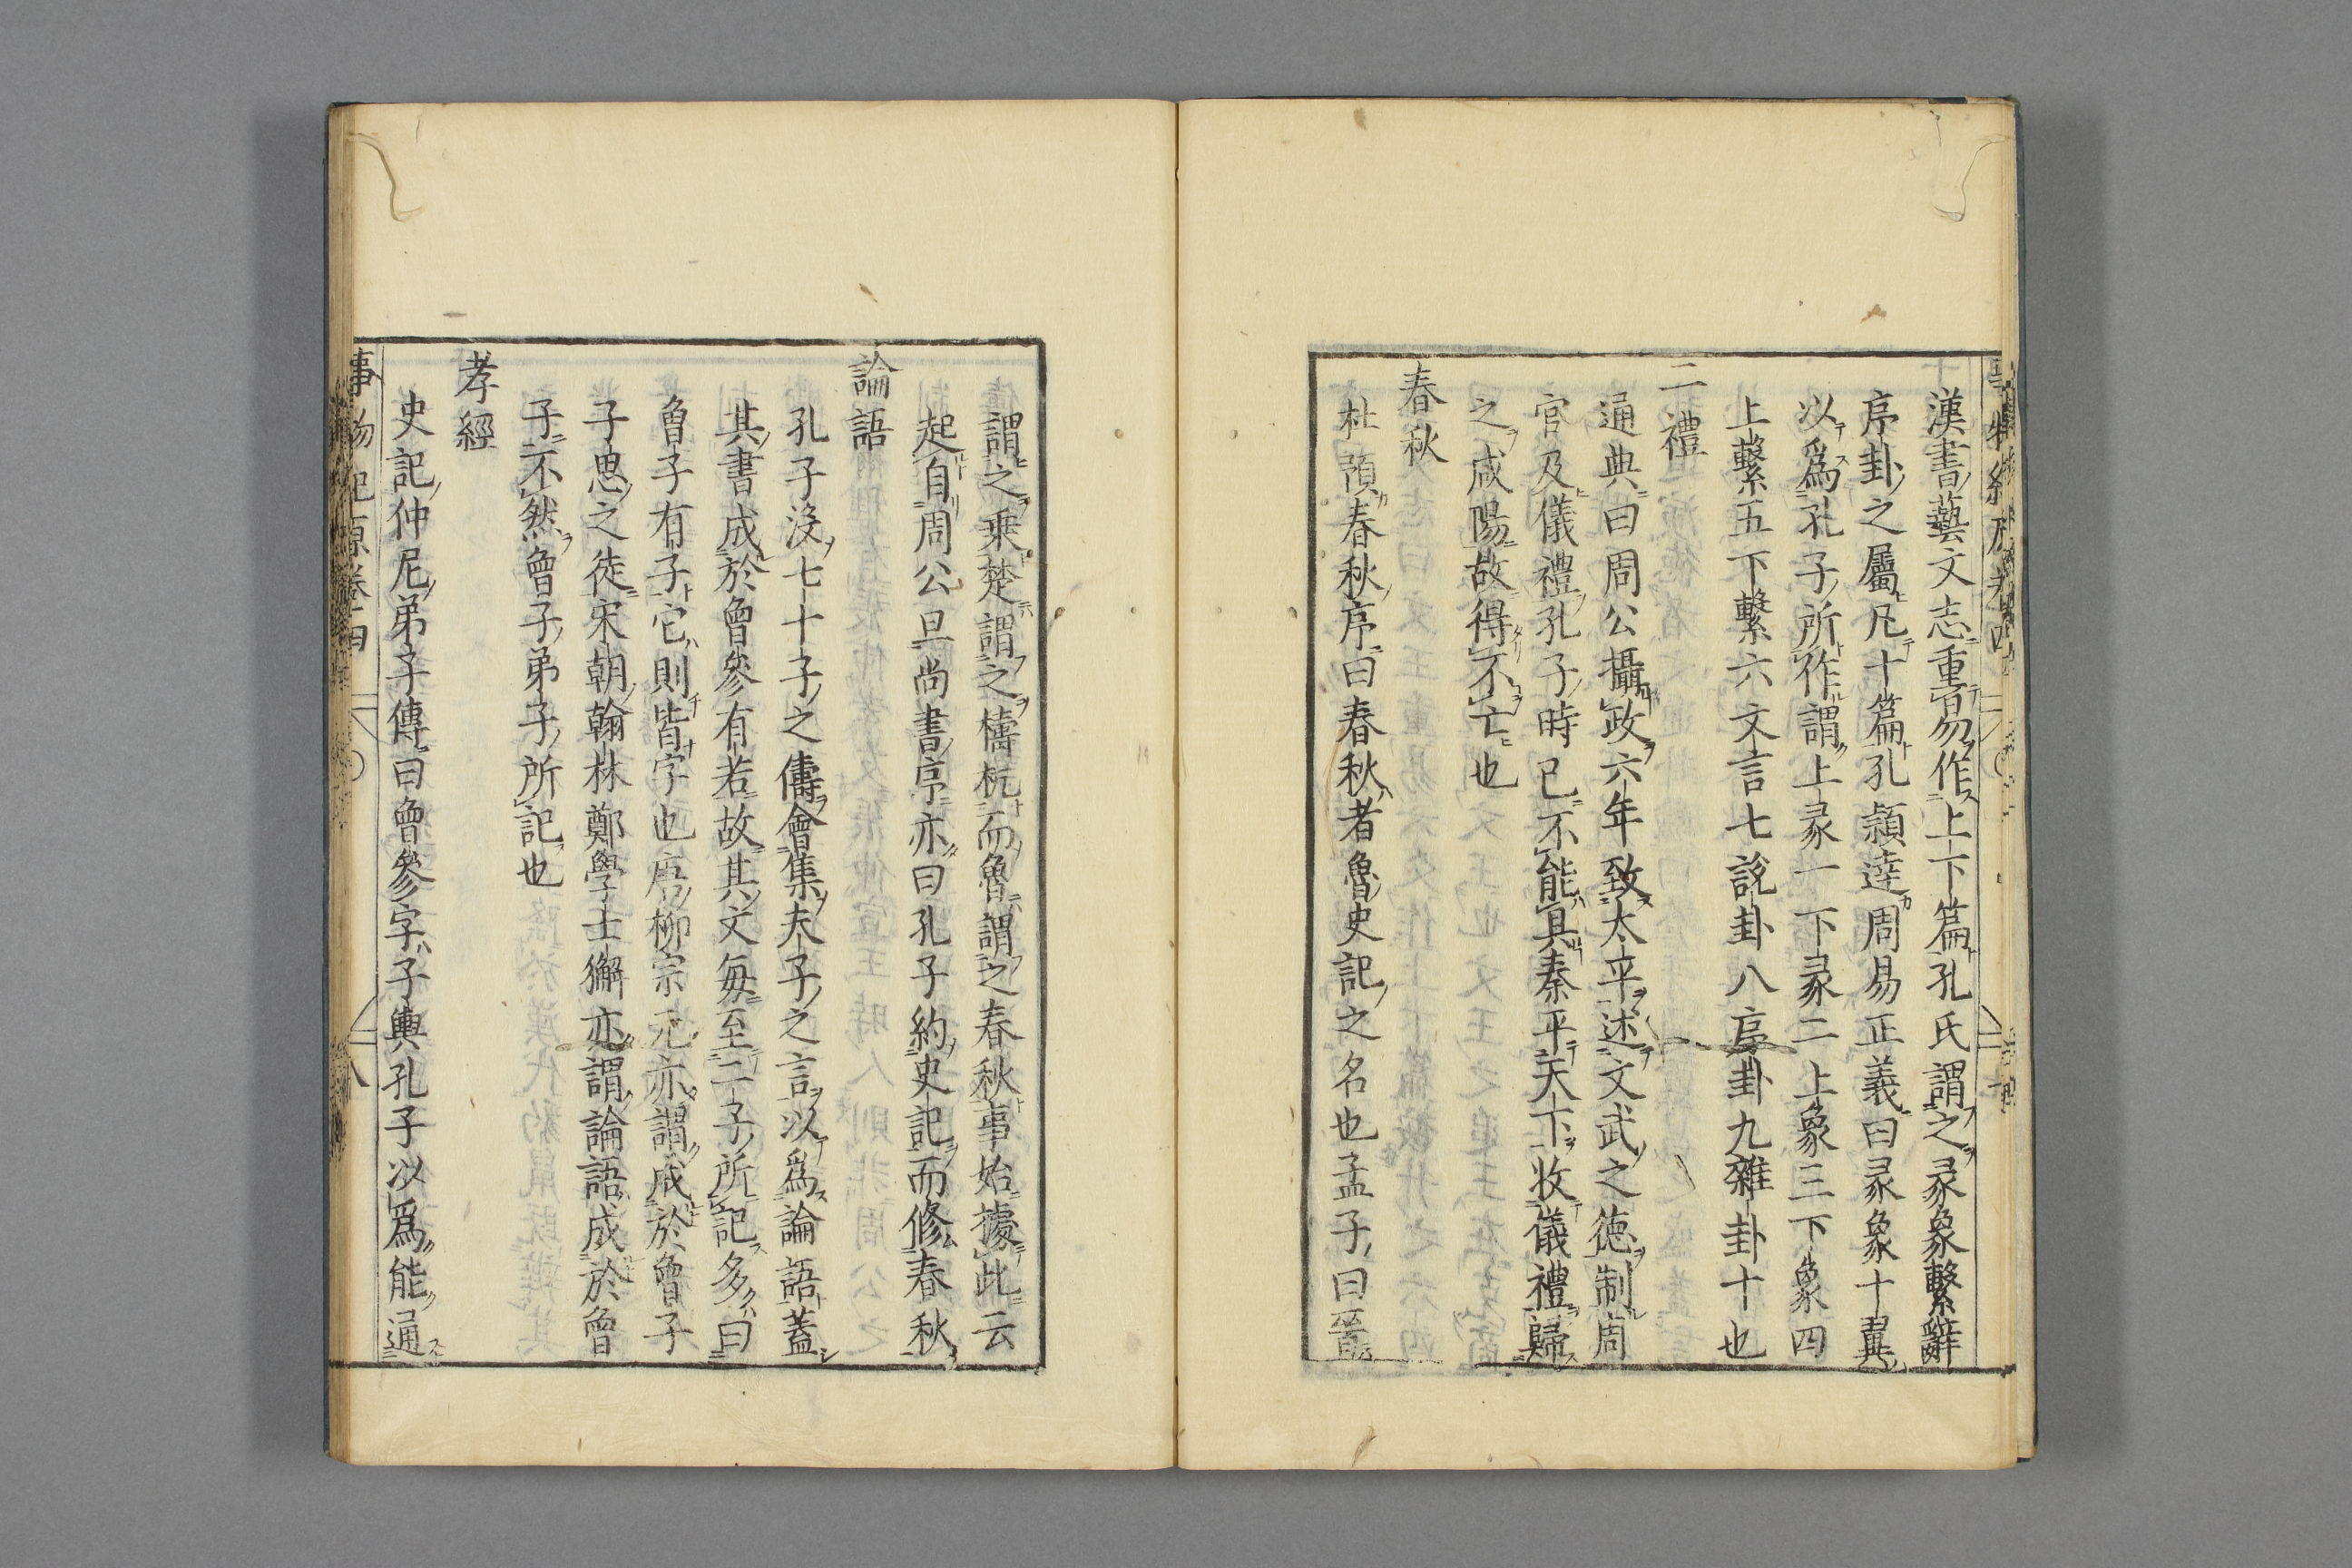 漢書藝文志重易作上下篇孔氏謂之彖象繫辭
序卦之屬凡十篇孔穎達周易正義曰彖象十翼
以爲孔子所作謂上彖一下彖二上象三下象四
上繫五下繫六文言七說卦八序卦九雜卦十也
二禮
通典曰周公攝政六年致太平述文武之德制周
官及儀禮孔子時已不能具秦平天下收儀禮歸
之咸陽故得不亡也
春秋
杜預春秋序曰春秋者魯史記之名也孟子曰晉
謂之乗楚謂之檮杌而魯謂之春秋事始據此云
起自周公旦尚書序亦曰孔子約史記而修春秋
論語
孔子沒七十子之儔會集夫子之言以爲論語蓋
其書成於曾參有若故其文每至二子所記多曰
曾子有子它則皆字也唐柳宗元亦謂成於曾子
子思之徒宋朝翰林鄭學士獬亦謂論語成於曾
子不然曾子弟子所記也
孝經
史記仲尼弟子傳曰曾參字子輿孔子以爲能通
事物紀原卷四 八